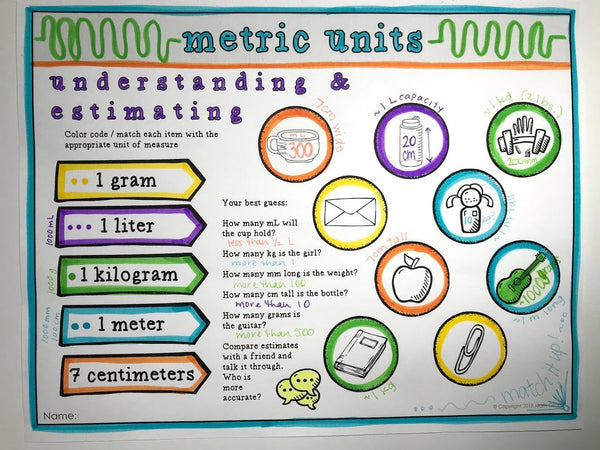 metric units
understanding &
estimating
Color code / match each item with the
appropriate unit of measure
1 gram
1 liter
1000 mL
1 kilogram
1000 g
1 meter
1000 mm
100 cm
7 centimeters
Name:
Your best guess:
How many mL will
the cup hold?
less than 1/2 L
How many kg is the girl?
more than 1
How many mm long is the weight?
more than 100
How many cm tall is the bottle?
more than 10
How many grams is
the guitar?
more than 500
Compare estimates
with a friend and
talk it through.
Who is
more
accurate?
7cm wide
mL
300
~1L capacity
20
cm
~1kg (2 lbs.)
200mm
10
7cm tall
1000
~1m long
~1kg
match it up!
© Copyright 2018